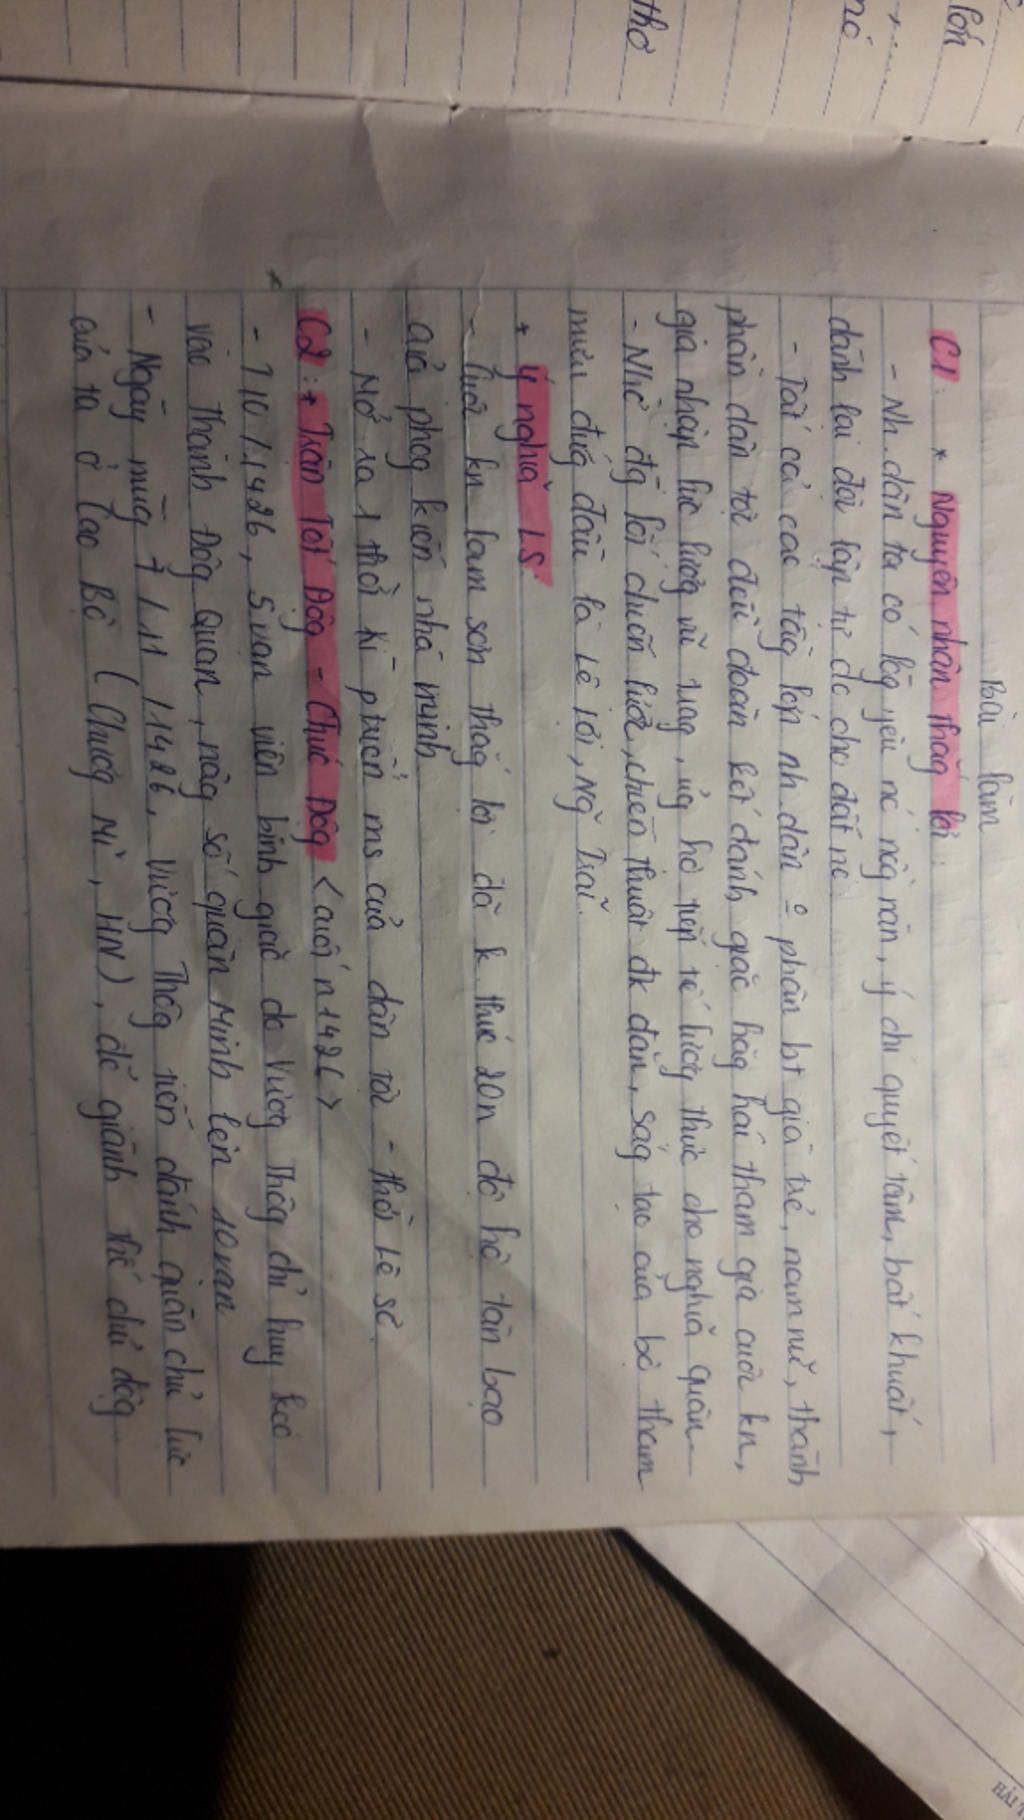 Bài làm
C1: * Nguyên nhân thắg lợi
- Nh.dân ta có lòg yêu nc nồg nàn, ý chí quyết tâm, bất khuất,
dành lại độc lập tự do cho đất nc
- Tất cả các tầg lớp nh.dân o phân bt già trẻ, nam nữ, thành
phần dân tộc đều đoàn kết đánh giặc hăg hái tham gia cuộc kn,
gia nhập lực lượg vũ trag, ủg hộ tiếp tế lươg thực cho nghĩa quân
- Nhờ đg lối chiến lược, chiến thuật đk đắn, ság tạo của bộ tham
mưu đứg đầu là Lê Lợi, Ng~ Trãi.
* Ý nghĩa LS:
- Cuộc kn Lam Sơn thắg lợi đã k thúc 20n đô hộ tàn bạo
của phog kiến nhà minh
- Mở ra 1 thời kì ptriển ms của dân tộc - thời Lê sơ
C2: * Trận Tốt Độg - Chúc Độg <cuối n 1426>
- T10/1426, 5 vạn viện binh giặc do Vươg Thôg chỉ huy kéo
vào Thành Đôg Quan, nâg số quân Minh lên 10 vạn
- Ngày mùg 7/11/1426, Vươg Thôg tiến đánh quân chủ lực
của ta ở Cao Bộ (Chươg Mĩ, HN), để giành thế chủ độg
thơ
nó
lớn
HẢI